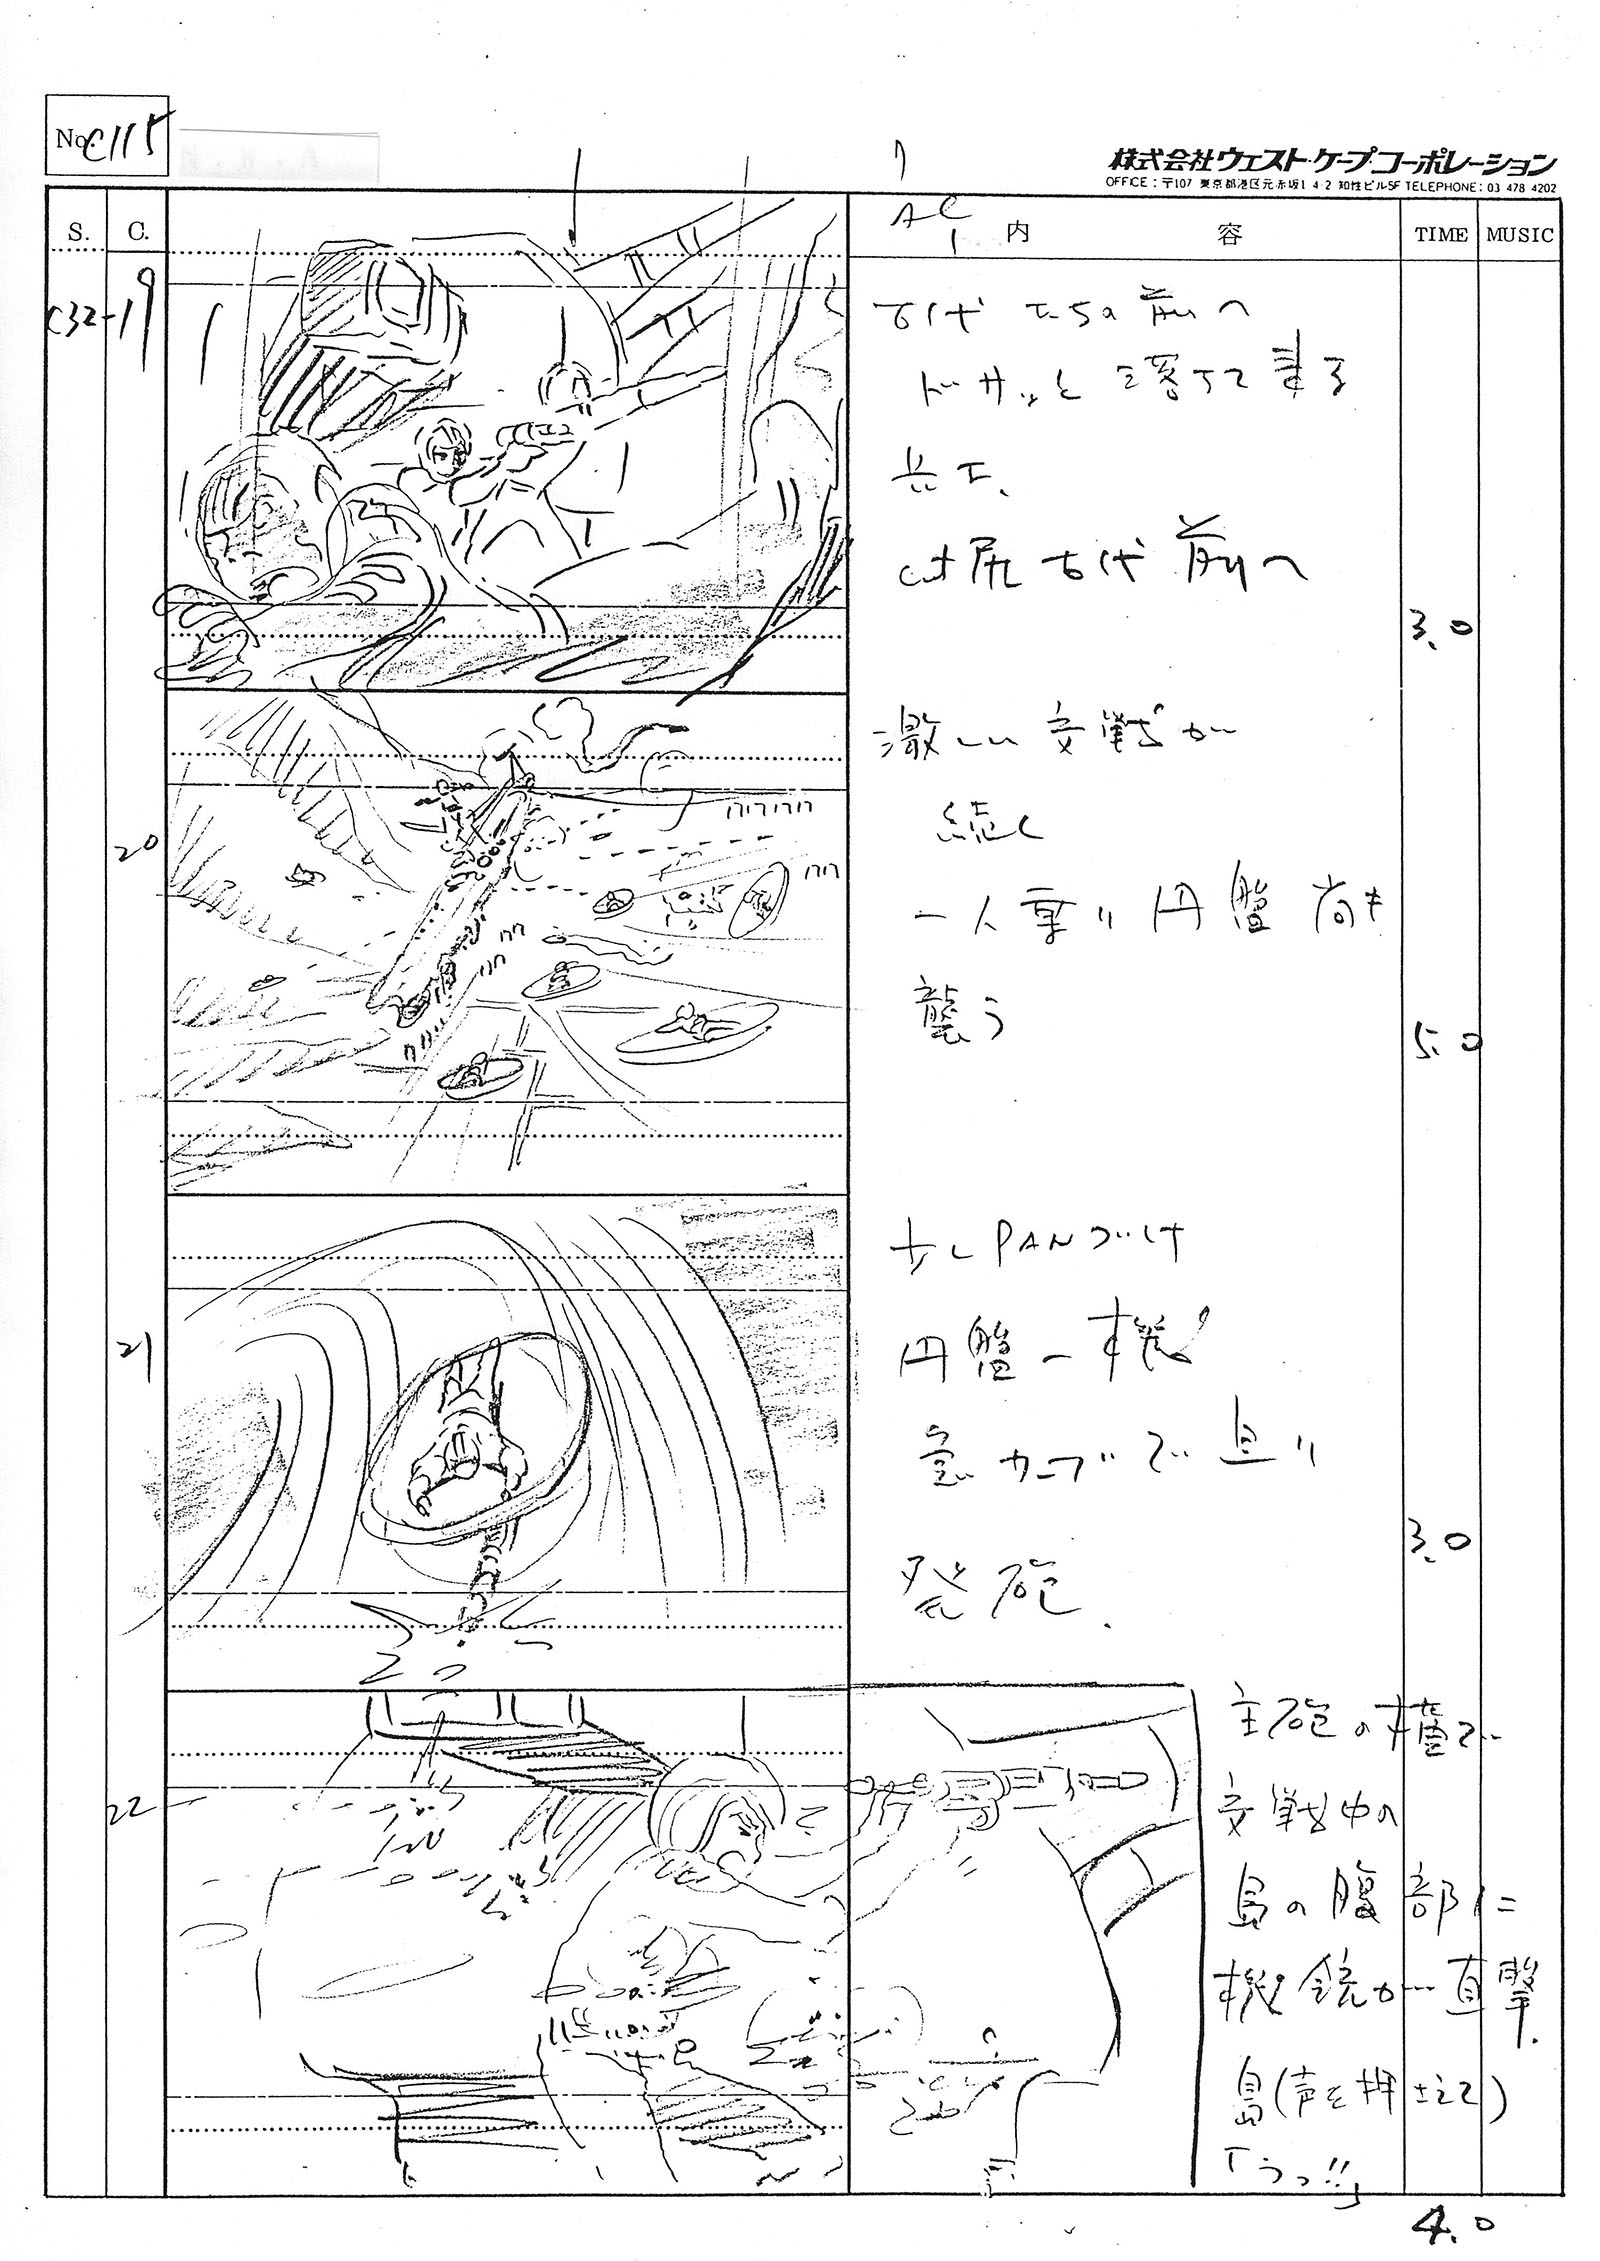 No. C115
株式会社ウェスト・ケープ・コーポレーション
OFFICE：〒107 東京都港区元赤坂1 4-2 知性ビル5F TELEPHONE: 03 478 4202
S.
C.
内容
TIME
MUSIC
C32-19
古代 たちの前へ
ドサッと落ちて来る
兵士、
cut尻 古代 前へ
3.0
20
激しい交戦が
続く
一人乗り円盤
襲う
5.0
21
少しPANづけ
円盤一機
急カーブで
発砲.
3.0
22
主砲の横で
交戦中の
島の腹部に
機銃が直撃.
島(声を押さえて)
「うっ!!」
4.0